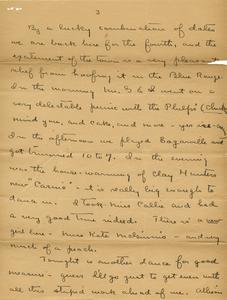 3
By a lucky combination of dates
we are back here for the fourth, and the
excitement of the town is a very pleasant
relief from hoofing it in the Blue Range.
In the morning Mr. G & I went on a
very delectable picnic with the Phelps' (Chicken
mind you, and cake, and more - yes ice-
In the afternoon we played Bagarville and
got trimmed 10 to 7. In the evening
was the house-warming of Clay Hunters
new "Casino" - it is really big enough to
dance in. I took Miss Callie and had
a very good time indeed. There is a new
girl here - Miss Kate - and very
much of a peach.
Tonight is another dance for good
measure - guess I'll go just to get even with
all this stupid work ahead of me. Allison